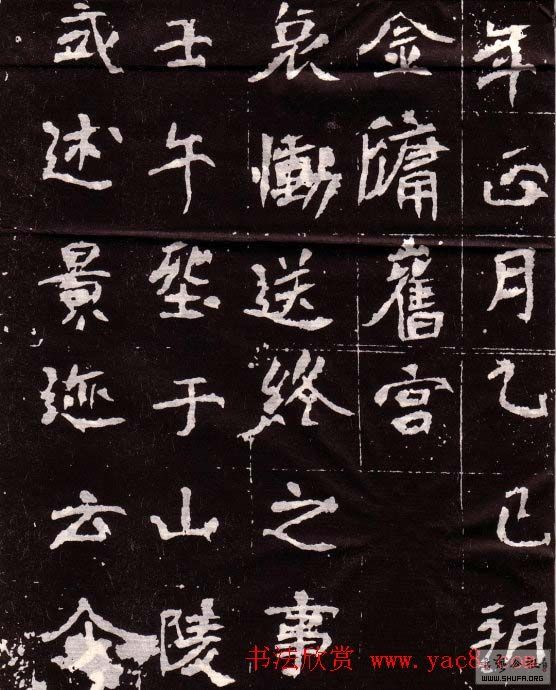 年正月乙巳朔
金墉舊宮
哀慟送終之事
壬午塟于山陵
式述景迹云尒
书法欣赏 www.yac8
WWW.SHUFA.ORG